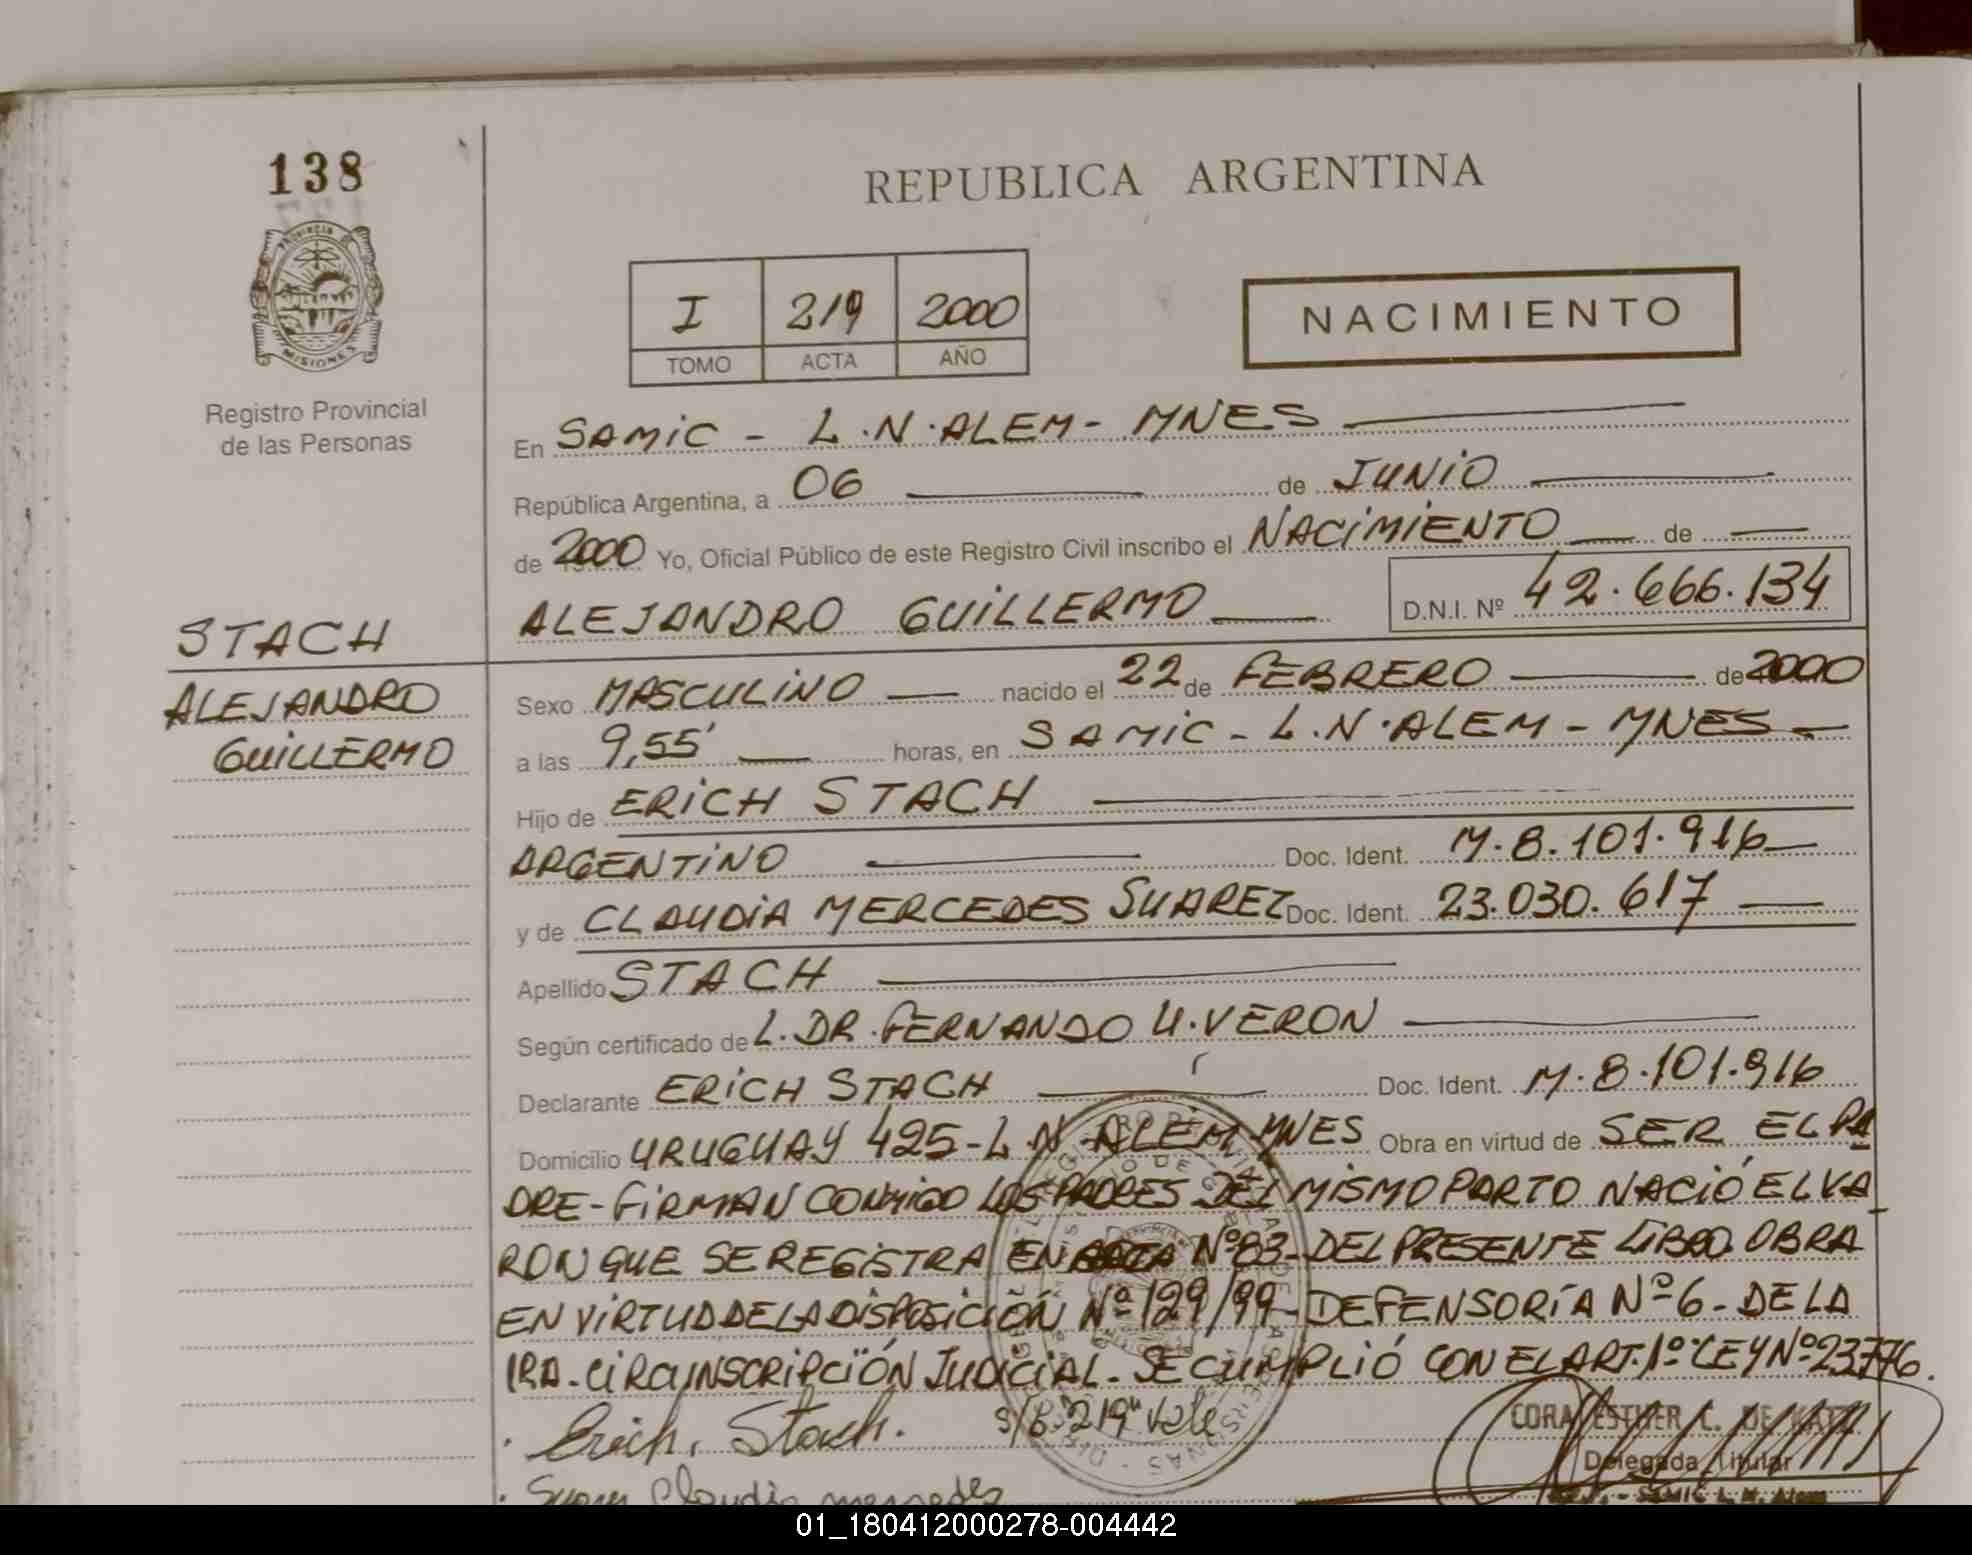 138
REPUBLICA ARGENTINA
PROVINCIA DE
MISIONES
I 219 2000
TOMO ACTA AÑO
NACIMIENTO
Registro Provincial
de las Personas
En SAMiC - L.N.ALEM- MNES
República Argentina, a 06 de JUNiO
de 2000 Yo, Oficial Público de este Registro Civil inscribo el NACiMiENTO de
ALEJANDRO GUiLLERMO D.N.I. Nº 42.666.134
STACH
ALEJANDRO
GUiLLERMO
Sexo MASCULiNO nacido el 22 de FEBRERO de 2000
a las 9,55' horas, en SAMiC - L.N.ALEM - MNES
Hijo de ERiCH STACH
ARGENTiNO Doc. Ident. M.8.101.916
y de CLAUDiA MERCEDES SUAREZ Doc. Ident. 23.030.617
Apellido STACH
Según certificado de L.DR.FERNANDO U.VERON
Declarante ERiCH STACH Doc. Ident. M.8.101.916
Domicilio URUGUAY 425-L.N.ALEM-MNES Obra en virtud de SER EL PA
DRE-FiRMAN CONMiGO LOS PADRES DEL MiSMO PARTO NACiÓ EL VA
RON QUE SE REGiSTRA EN ACTA Nº83-DEL PRESENTE LiBRO. OBRA
EN ViRTUD DE LA DiSPOSiCiÓN Nº 129/99-DEFENSORÍA Nº6-DE LA
1RA.CiRCUNSCRiPCiÓN JUDiCiAL. SE CUMPLiÓ CON EL ART.1º LEY Nº23776.
Erich, Stach. S/B. 219" vale
CORA ESTHER C. DE
Delegada Titular
SAMIC L. N. Alem
Suarez Claudia mercedes
01_180412000278-004442